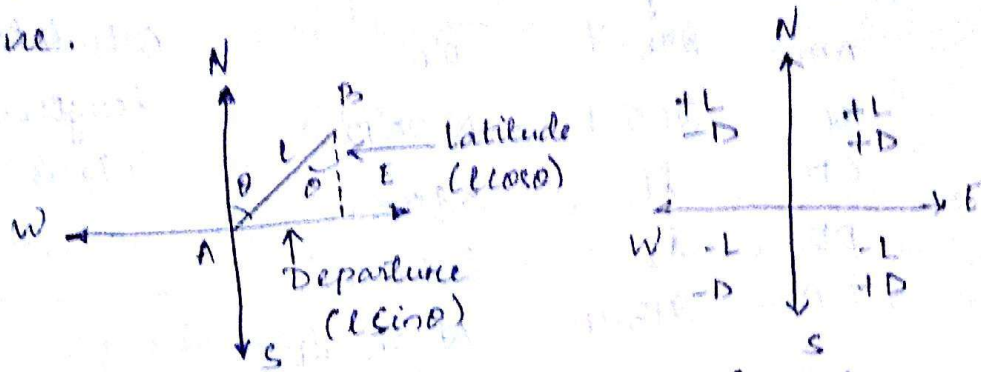 ne.
N
B
l
θ
θ
Latitude
(l cosθ)
E
W
A
Departure
(l sinθ)
S
N
+L
-D
+L
+D
W
E
-L
-D
-L
+D
S